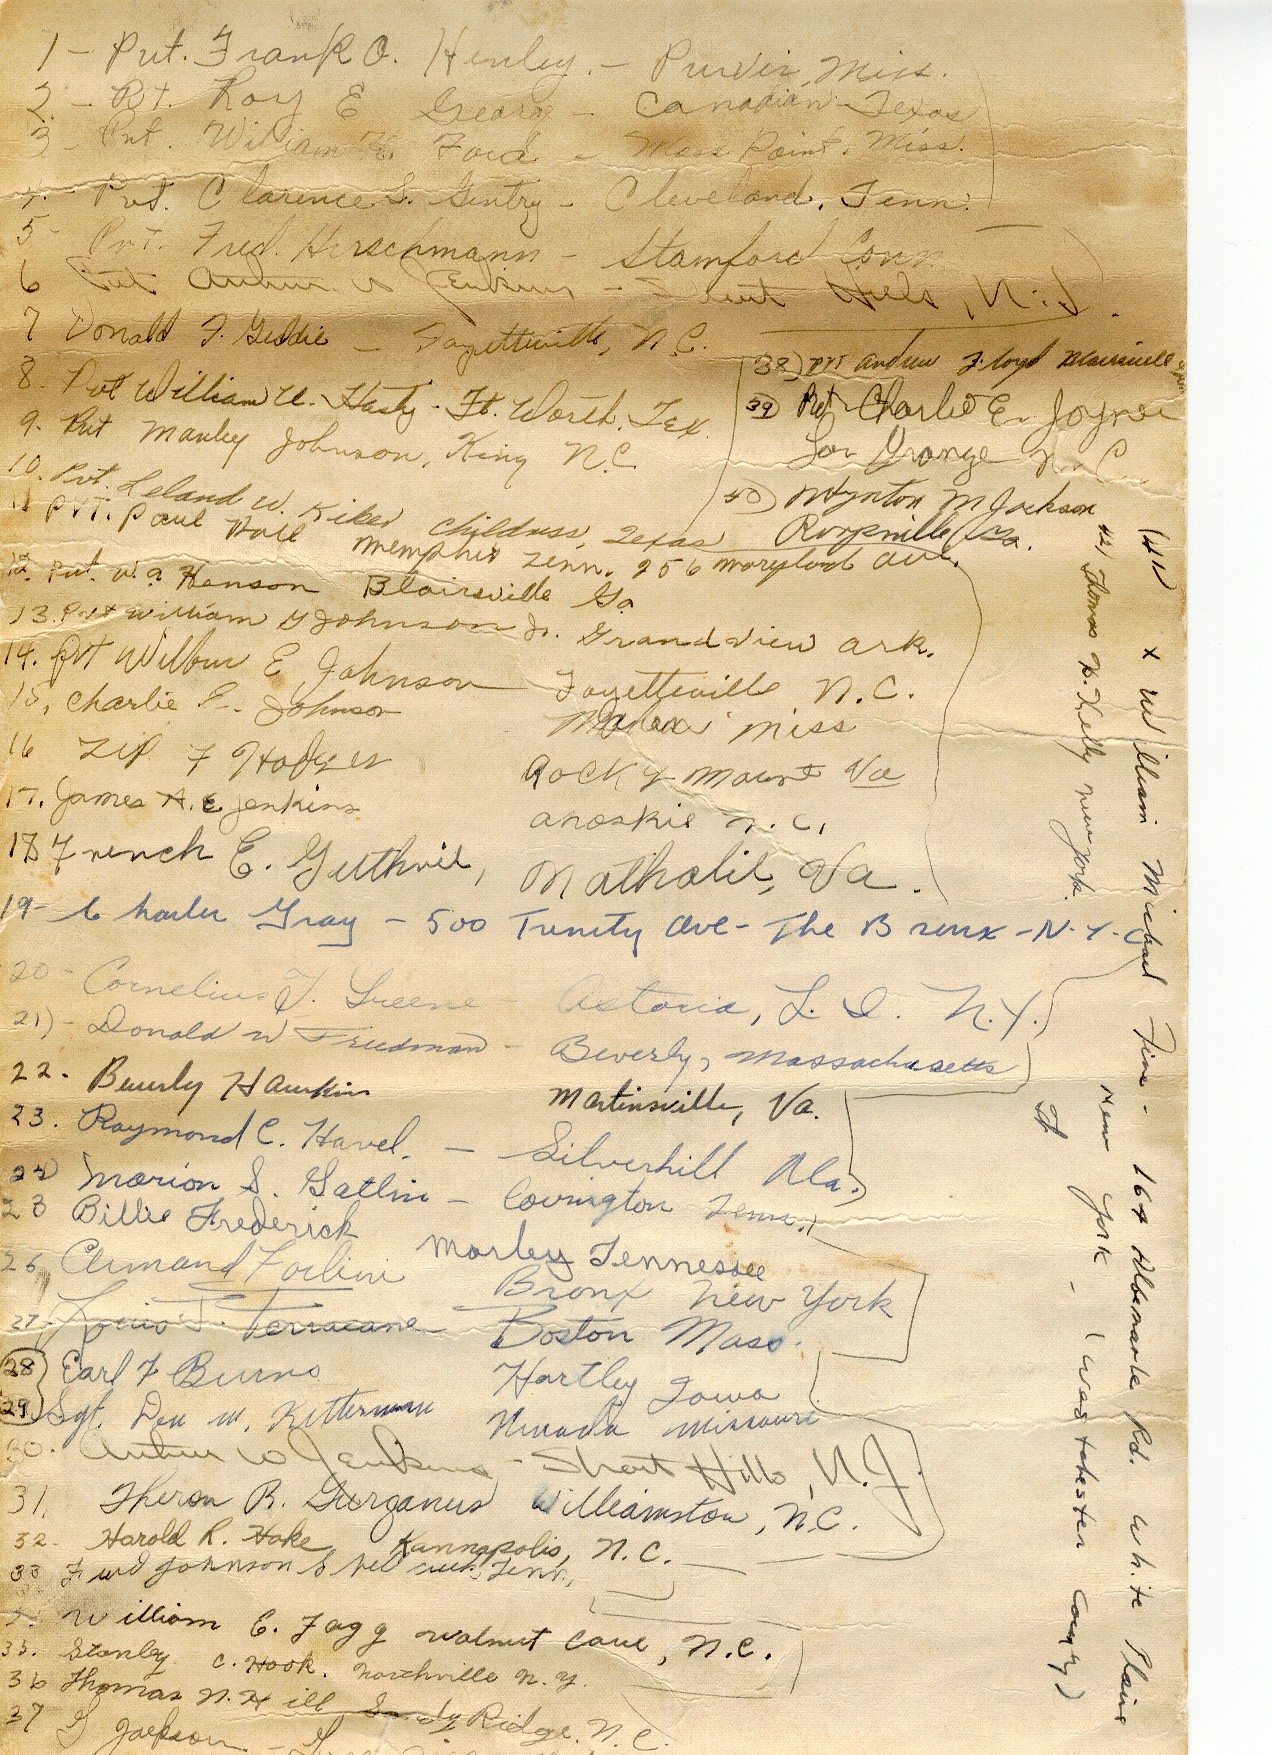 1 - Pvt. Frank O. Henley. - Purvis, Miss.
2. - Pvt. Roy E George - Canadian - Texas
3 - Pvt. William H. Ford - Moss Point, Miss.
4. - Pvt. Clarence S. Gentry - Cleveland, Tenn.
5 - Pvt. Fred. Herschmann - Stamford Conn
6 Pvt Arthur W Jenkins - Short Hills, N.J.
7 Donald F. Geddie - Fayetteville, N.C.
8. Pvt William U. Hasty - Ft. Worth, Tex.
9. Pvt Manley Johnson, King N.C.
10. Pvt. Leland W. Kiker Childress, Texas
11 PVT. Paul Hall Memphis Tenn. 256 Maryland Ave.
12. Pvt. W. Henson Blairsville Ga
13. Pvt William G Johnson Jr. Grandview Ark.
14. Pvt Wilbur E Johnson Fayetteville N.C.
15, Charlie E. Johnson Miss
16 Zip F Hodges Rocky Mount Va
17. James A. E Jenkins Ahoskie N.C.
18 French E. Guthrie, Nathalie, Va.
19- Charles Gray - 500 Trinity Ave - The Bronx - N.Y.C
20 - Cornelius J. Greene - Astoria, L. I. N.Y.
21) - Donald W Friedman - Beverly, Massachusetts
22. Beverly Hawkins Martinsville, Va.
23. Raymond C. Havel. - Silverhill Ala.
24) Marion S. Gatlin - Covington Tenn.
23 Billie Frederick Morley Tennessee
26 Armand Forlini Bronx New York
27. Louis J. Terracane Boston Mass.
28 Earl F Burns Hartley Iowa
29 Sgt. Don M. Ketterman Nevada Missouri
30. Arthur W Jenkins - Short Hills, N.J.
31. Theron R. Gurganus Williamston, N.C.
32. Harold R. Hoke Kannapolis, N.C.
33 Fred Johnson Tenn.,
William E. Fagg Walnut Cove, N.C.
35. Stanley C. Hook. Northville N.Y.
36 Thomas N. Hill Sandy Ridge, N.C.
37 G Jackson -
38) Pvt Andrew Floyd Blairsville
39) Pvt Charlie E. Joyner
La Grange N.C.
40) Wynton M Jackson
Roopville, Ga.
41) x William Michael Fine - 164 Albemarle Rd. White Plains
New York - (Westchester County)
42) Thomas H. Kelly New York.